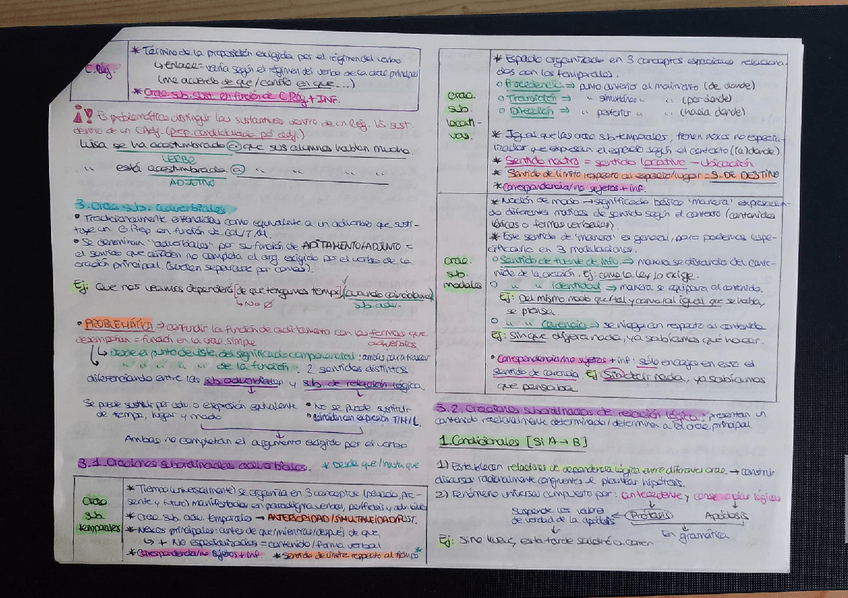 C. Rég.
* Término de la preposición exigido por el régimen del verbo
↳ Enlace = varía según el régimen del verbo de la orac principal
(me acuerdo de que / confío en que...)
* Orac. sub. sust. en función de C. Rég + INF.
¡! Es problemático distinguir las sustantivas dentro de un C. Rég. LO SUST
dentro de un C. Adj. (prep. condicionada por adj.)
Luisa se ha acostumbrado a que sus alumnos hablan mucho
VERBO
" está acostumbrada a " " " "
ADJETIVO
3. Orac. sub. adverbiales
• Tradicionalmente entendidas como equivalente a un adverbio que susti-
tuye un G. Prep en función de CCL/T/M.
• Se denominan "adverbiales" por su función de ADITAMENTO/ADJUNTO =
el sentido que añaden no completa el arg. exigido por el verbo de la
oración principal. (suelen separarse por comas).
Ej: Que nos veamos dependerá [de que tengamos tiempo]
↳ No Ø
sub. adv.
• PROBLEMÁTICA → confundir la función de aditamento con las formas que
desempeñan = función en la orac simple
adverbiales
↳ Desde el punto de vista del significado composicional: ambas para hacer
" " " " de la función: 2 sentidos distintos
diferenciando entre las sub adverbiales y sub. de relación lógica.
Se puede sustituir por adv. o expresión equivalente
de tiempo, lugar y modo
• No se puede sustituir
expresión T/M/L.
Ambas no completan el argumento exigido por el verbo
3.1. Oraciones subordinadas adverbiales.
* Desde que/hasta que
Orac
sub.
temporales
* Tiempo (universalmente) se organiza en 3 conceptos (pasado, pre-
sente y futuro) manifestados en paradigma verbal, perífrasis y adverbios
* Orac. sub. adv. temporales → ANTERIORIDAD/SIMULTANEIDAD/POST.
* Nexos principales: antes de que/mientras/después de que,
↳ + No especializados = contenido/forma verbal
* Correspondencia/no sujetos + inf.
* Sentido de límite respecto al tiempo
Orac
sub.
locati-
vas.
* Espacio organizado en 3 conceptos espaciales relaciona-
dos con los temporales.
○ Procedencia → punto anterior al movimiento (de donde)
○ Transición → " simultáneo " (por donde)
○ Dirección → " posterior " (hacia donde)
* Igual que las orac sub temporales, tienen nexos no especia-
lizados que expresan el espacio según el contexto ((a)donde)
* Sentido neutro = sentido locativo → ubicación
* Sentido de límite respecto al espacio/lugar = S. DE DESTINO
* Correspondencia/no sujetos + inf.
Orac.
sub.
modales
* Noción de modo → significado básico "manera" expresan-
do diferentes matices de sentido según el contexto (contenidos
léxicos o formas verbales)
* Este sentido de "manera" es general, pero podemos espe-
cificarlo en 3 modulaciones.
○ Sentido de fuente de inf. → manera se distancia del conte-
nido de la oración. Ej: como la ley lo exige.
○ " " identidad → manera se equipara al contenido.
Ej: Del mismo modo que tal y como/al igual que se habla,
se piensa
○ " " carencia → se niega con respecto al contenido
Ej: Sin que dijera nada, ya sabíamos qué hacer.
• Correspondencia/no sujetos + inf: sólo encaja en este el
sentido de carencia Ej: Sin decir nada, ya sabíamos
qué pensaba
3.2. Oraciones subordinadas de relación lógica: presentan un
contenido relacionalmente determinado/determina a la orac. principal
1. Condicionales [SI A → B]
1) Establecen relaciones de dependencia lógica entre diferentes orac. → construir
discursos racionalmente congruentes al plantear hipótesis.
2) Fenómeno universal compuesto por: antecedente y consecuente lógico
Suspende los valores
de verdad de la apódosis
← Prótasis
Apódosis
En gramática
Ej: Si no llueve, esta tarde saldré a correr